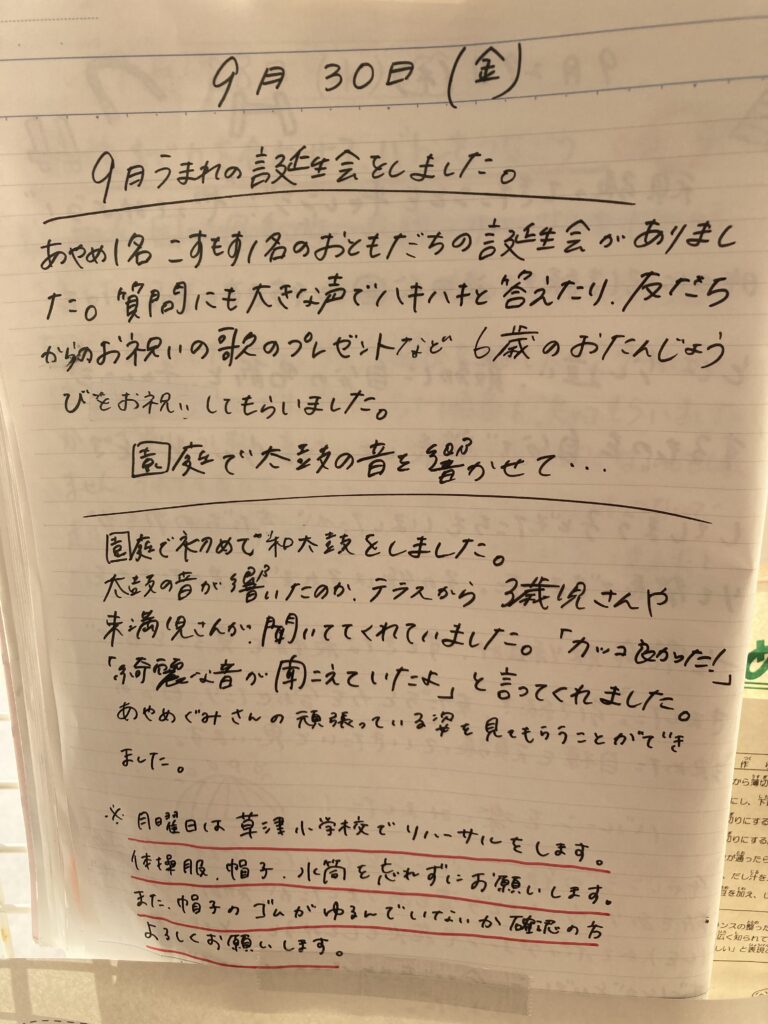 9月 30日 (金)
9月うまれの誕生会をしました。
あやめ1名 こすもす1名のおともだちの誕生会がありまし
た。質問にも大きな声でハキハキと答えたり、友だち
からのお祝いの歌のプレゼントなど 6歳のおたんじょう
びをお祝いしてもらいました。
園庭で太鼓の音を響かせて...
園庭で初めて和太鼓をしました。
太鼓の音が響いたのか、テラスから 3歳児さんや
未満児さんが、聞いててくれていました。「カッコ良かった!」
「綺麗な音が聞こえていたよ」と言ってくれました。
あやめぐみさんの頑張っている姿を見てもらうことができ
ました。
※月曜日は草津小学校でリハーサルをします。
体操服、帽子、水筒を忘れずにお願いします。
また、帽子のゴムがゆるんでいないか確認の方
よろしくお願いします。